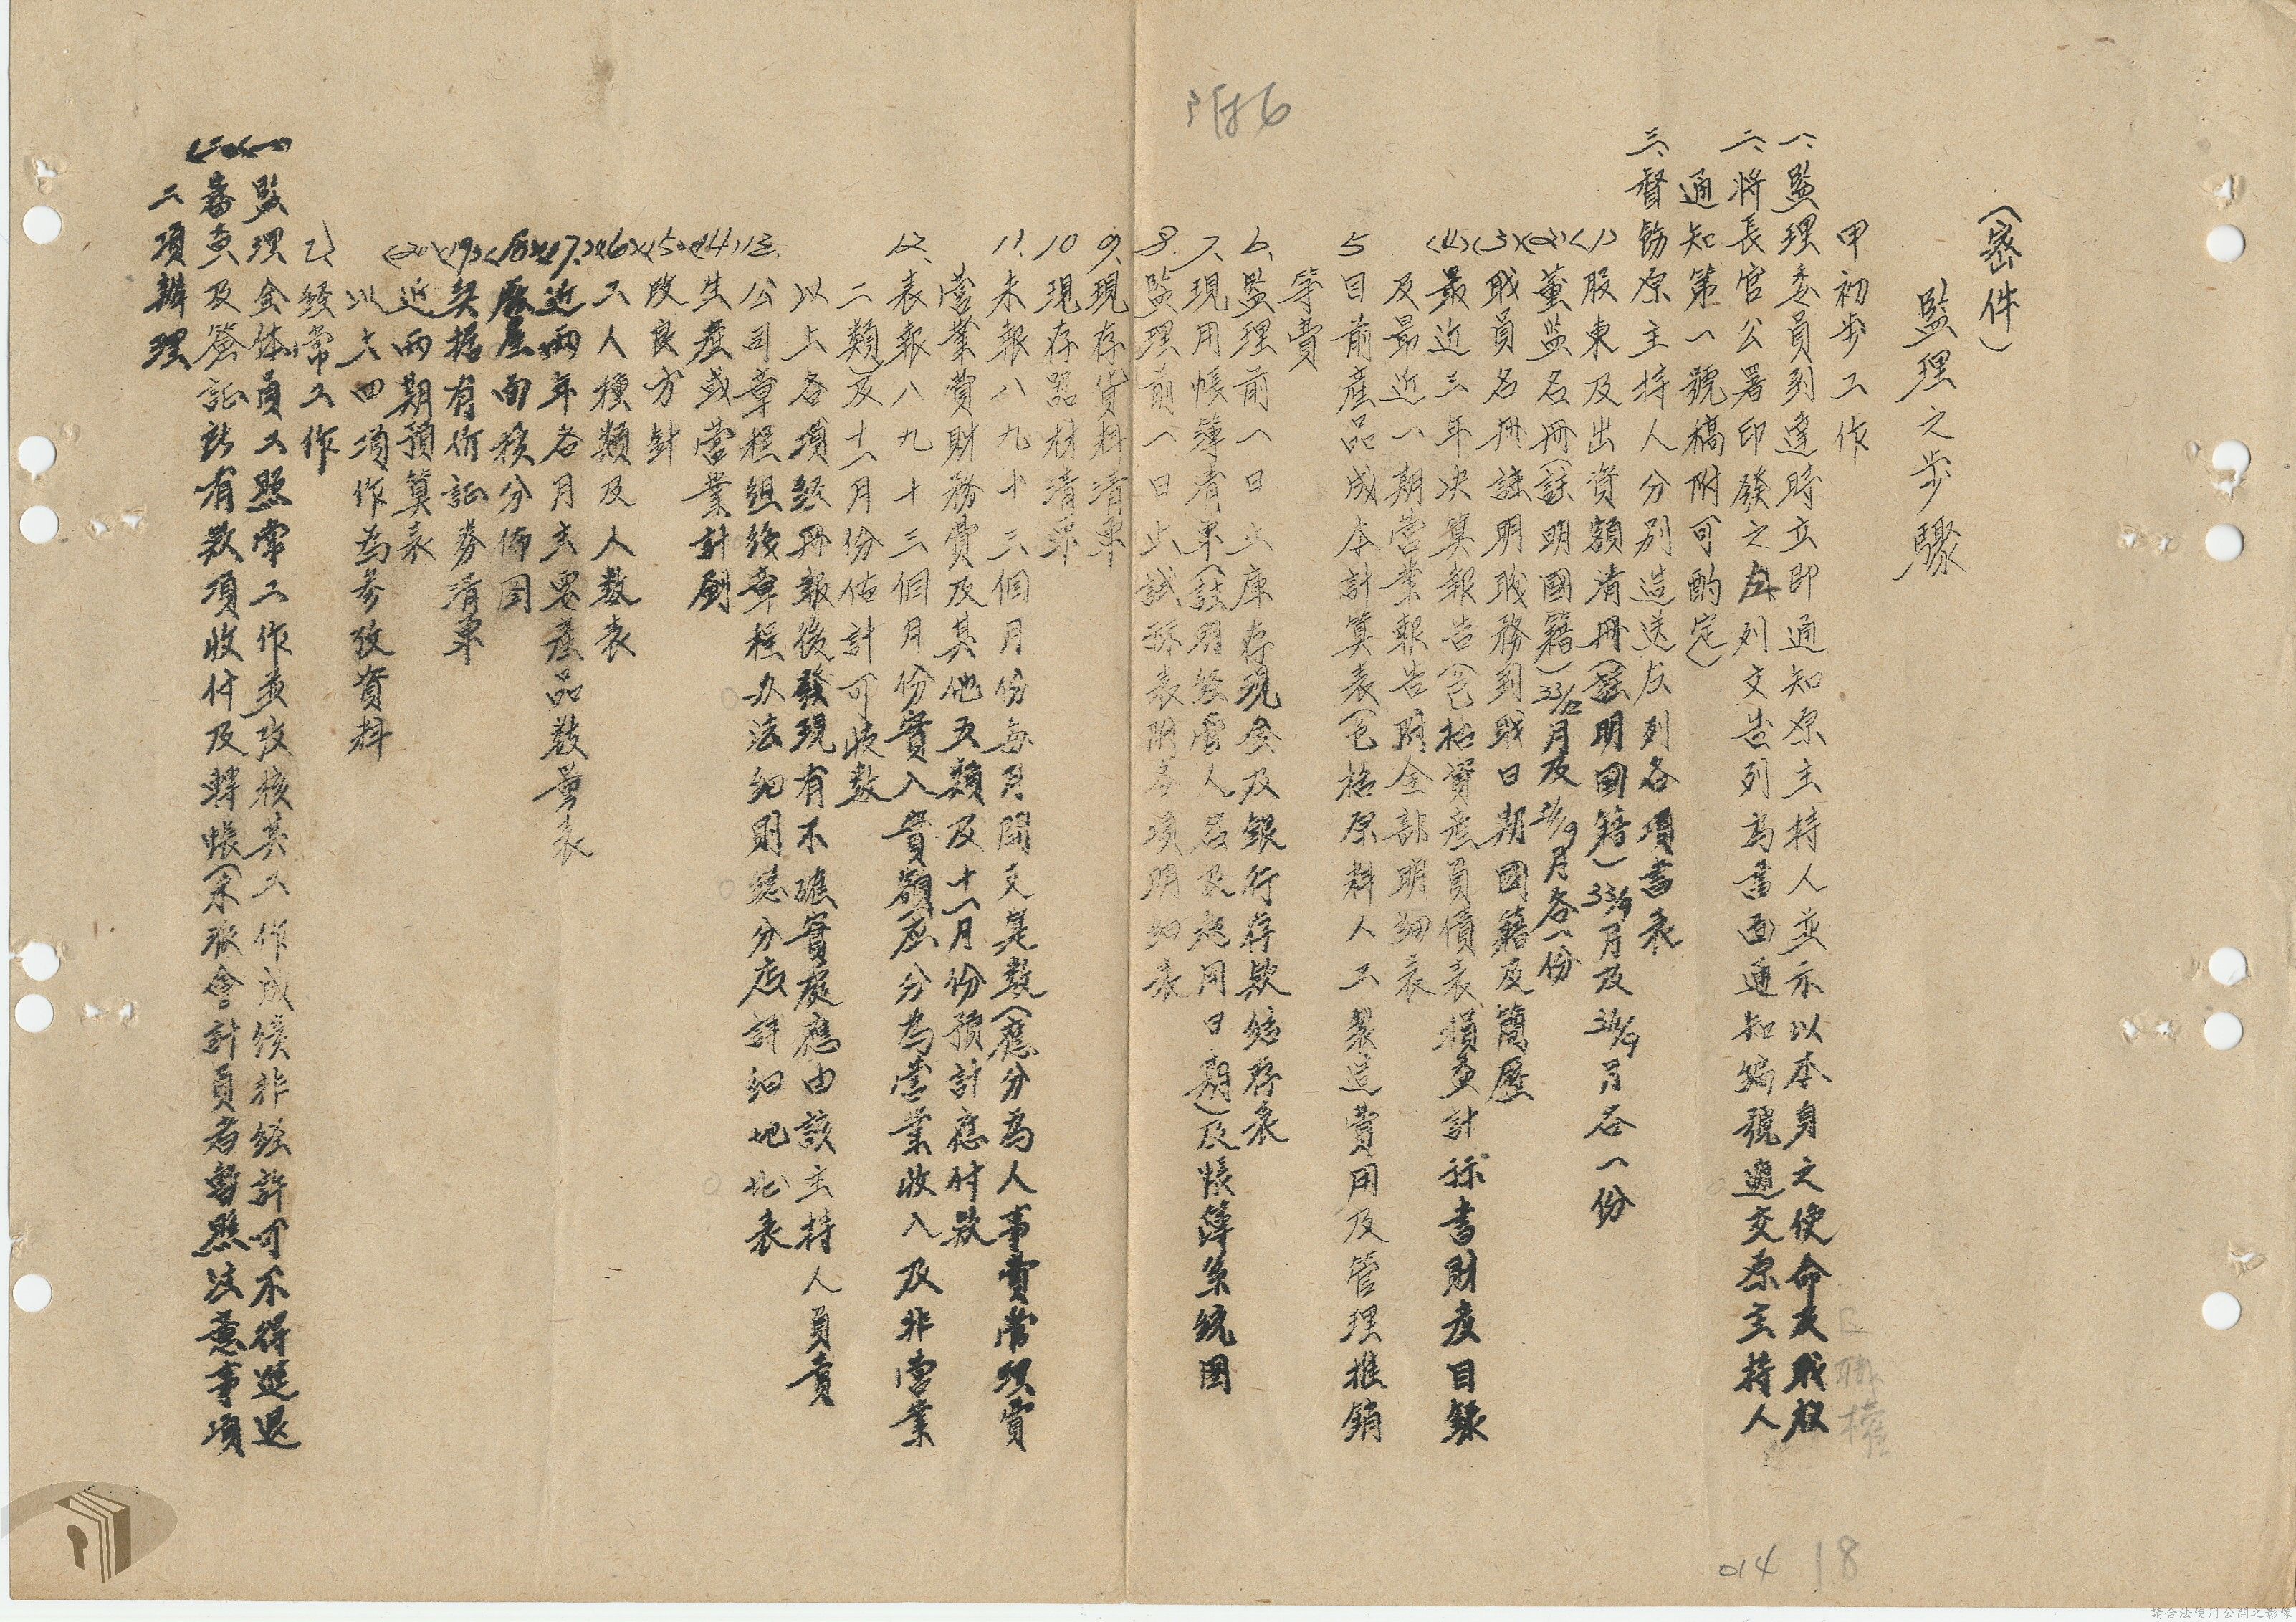 附6
(密件)
監理之步驟
甲初步工作
一、監理委員到達時立即通知原主持人並示以本身之使命及職權
二、將長官公署印發之左列文告列為書面通知編號遞交原主持人
通知第一號稿附可酌定)
三、督飭原主持人分別造送左列各項書表
(1)股東及出資額清冊(註明國籍)33/9月及34/9月各一份
(2)董监名冊(註明國籍)33/12月及34/9月各一份
(3)職員名冊註明職務到職日期國籍及簡歷
(4)最近三年決算報告(包括資產負債表損益計祘書財产目錄
及最近一期营業報告附全部明細表
5目前產品成本計算表(包括原料人工製造費用及管理推銷
等費
6.監理前一日止庫存現金及銀行存款結存表
7.現用帳簿清單(註明經管人名及起用日期)及帳簿系統图
8.監理前一日止試祘表附各項明細表
9、現存貨料清單
10現存器材清單
11.未報八九十三個月份每月開支寔数(應分為人事費常項費
营業費財務費及其他五類及十一月份預計應付款
12.表報八九十三個月份實入實額(应分為营業收入及非营業
二類)及十一月份估計可收数
以上各項經冊報後發現有不確實處應由該主持人員責
13.公司章程組织章程办法細則總分店詳細地址表
(14)生產或营業計劃
(15)改良方針
(16)工人種類及人数表
(17)近兩年各月主要產品数量表
(18)厰屋面积分佈图
(19)契据有价証券清單
(20)近兩期預算表
以上四項作為參攷資料
乙、经常工作
(一)監理全体員工照常工作並攷核其工作成績非经許可不得進退
(二)審查及簽証訖有款項收付及轉帳(不派會計員者暫照注意事項
二項辦理
职權
014 18
請合法使用公開之影像